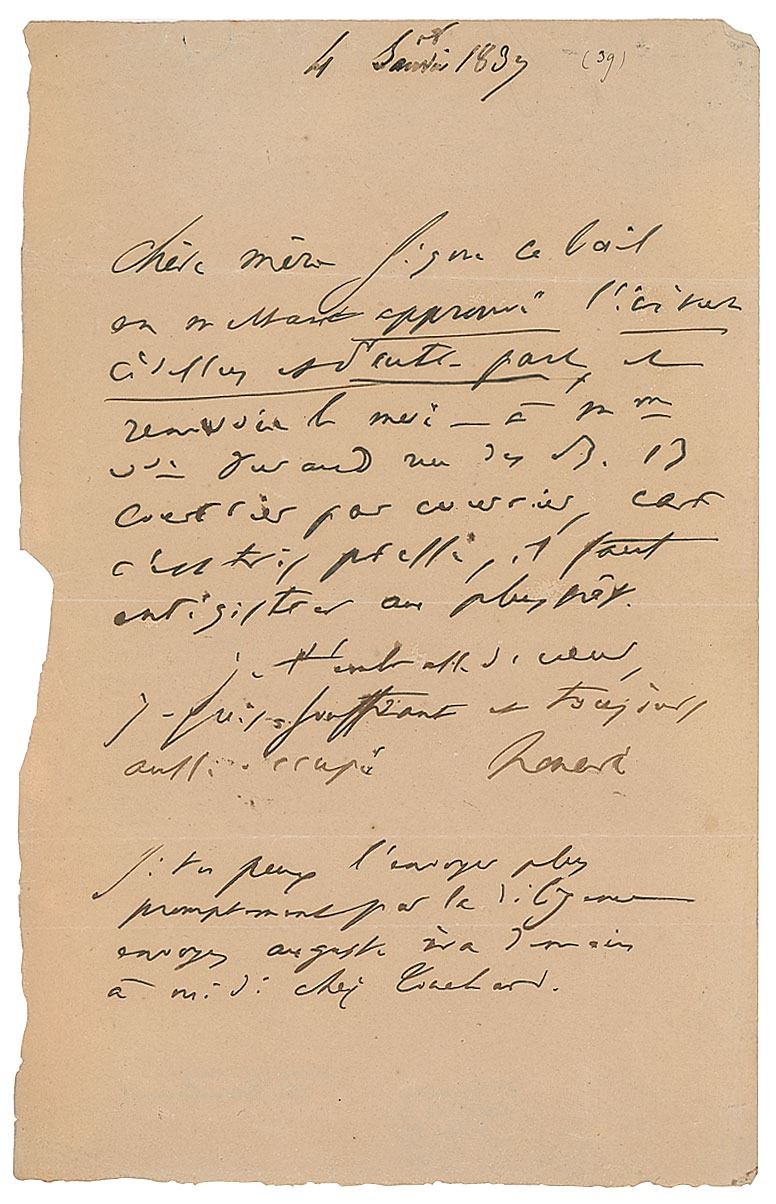 4 Janvier 1839 (39)
Chère mère signe ce bail
en mettant approuvé l'écriture
ci dessus et d'autre part, et
renvoie le moi à Mme
vve Durand rue des B. 13
courrier par courrier, car
c'est très pressé, il faut
enregistrer au plus tôt.
je t'embrasse de cœur,
je suis souffrant et toujours
aussi occupé Honoré
si tu peux l'envoyer plus
promptement par la diligence
envoyes auguste ira demain
à midi chez Touchard.